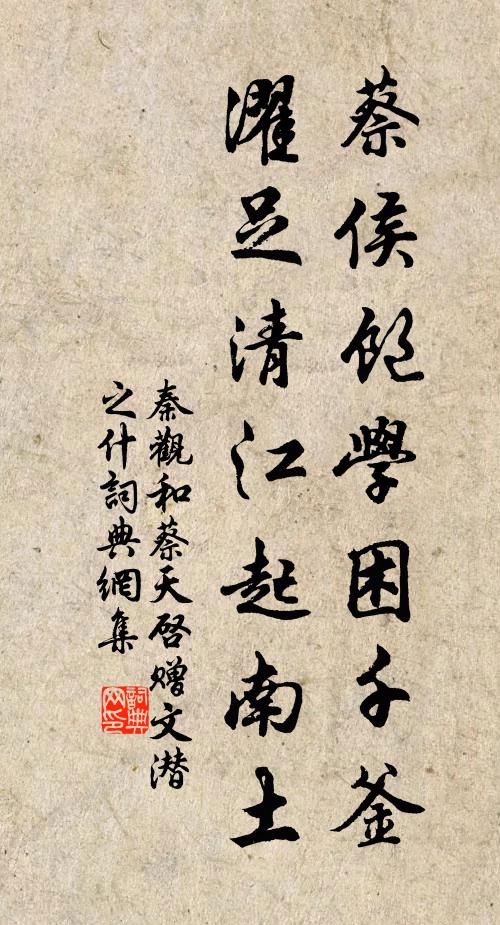 蔡侯飽學困千釜
濯足清江起南土
秦觀和蔡天啓贈文潜
之什詞典網集
詞典
网印